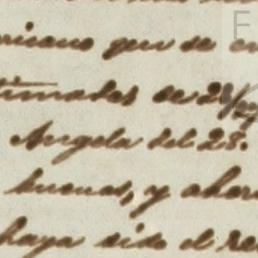 ricano que se en
timados de 28/
Angela del 28.
buenas, y ahora
haya sido el re